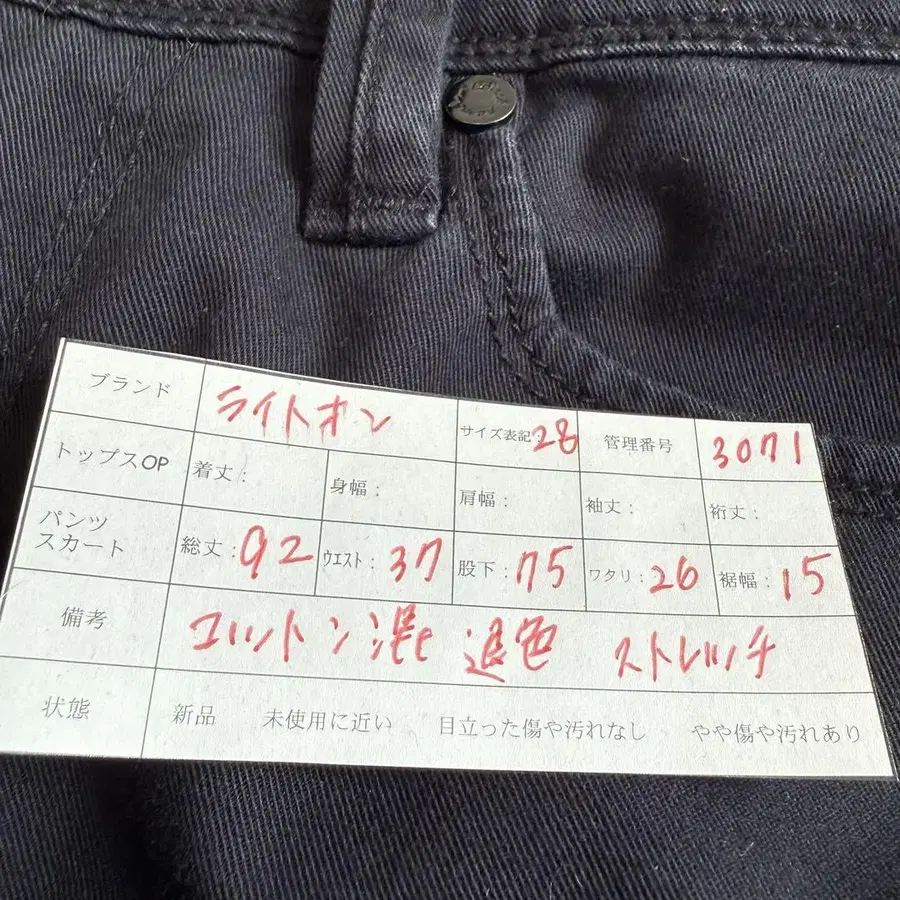 ブランド ライトオン サイズ表記：28 管理番号 3071
トップスOP 着丈： 身幅： 肩幅： 袖丈： 裄丈：
パンツ スカート 総丈：92 ウエスト：37 股下：75 ワタリ：26 裾幅：15
備考 コットン混 退色 ストレッチ
状態 新品 未使用に近い 目立った傷や汚れなし やや傷や汚れあり